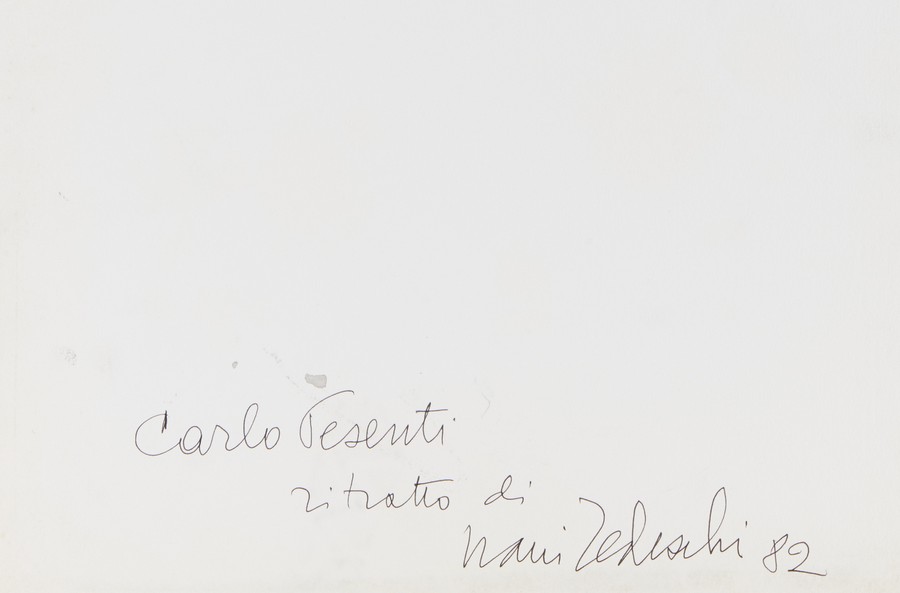 Carlo Pesenti
ritratto di
Nani Tedeschi 82